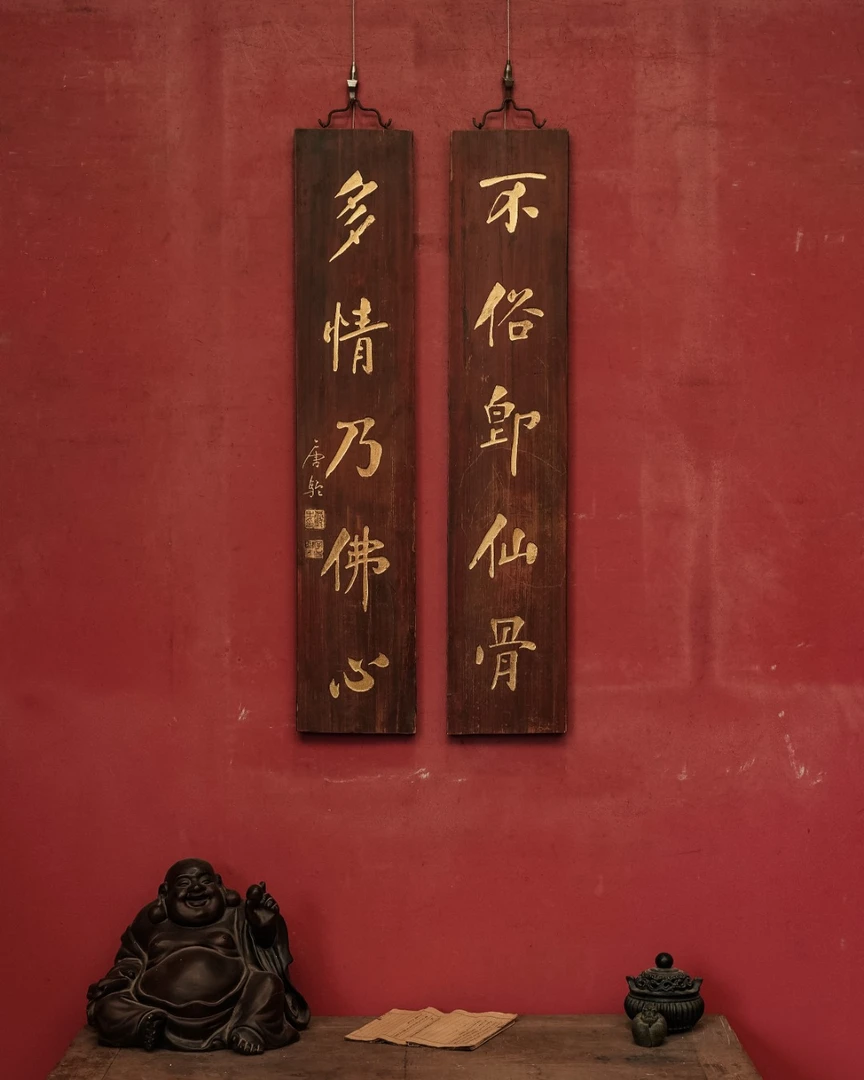 不俗即仙骨
多情乃佛心
唐駝